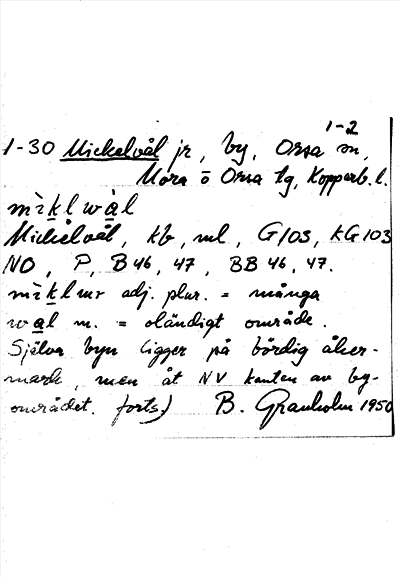 1-2
1-30 Mickelvål jr, by, Orsa sn,
Mora o Orsa tg, Kopparb. l.
mìkl wàl
Mickelvål, kb, ml, G103, KG103
NO, P, B46, 47, BB 46, 47.
mìklur adj. plur. = många
wal m. = oländigt område.
Själva byn ligger på bördig åker-
mark, men åt NV kanten av by-
området. forts) B. Granholm 1950